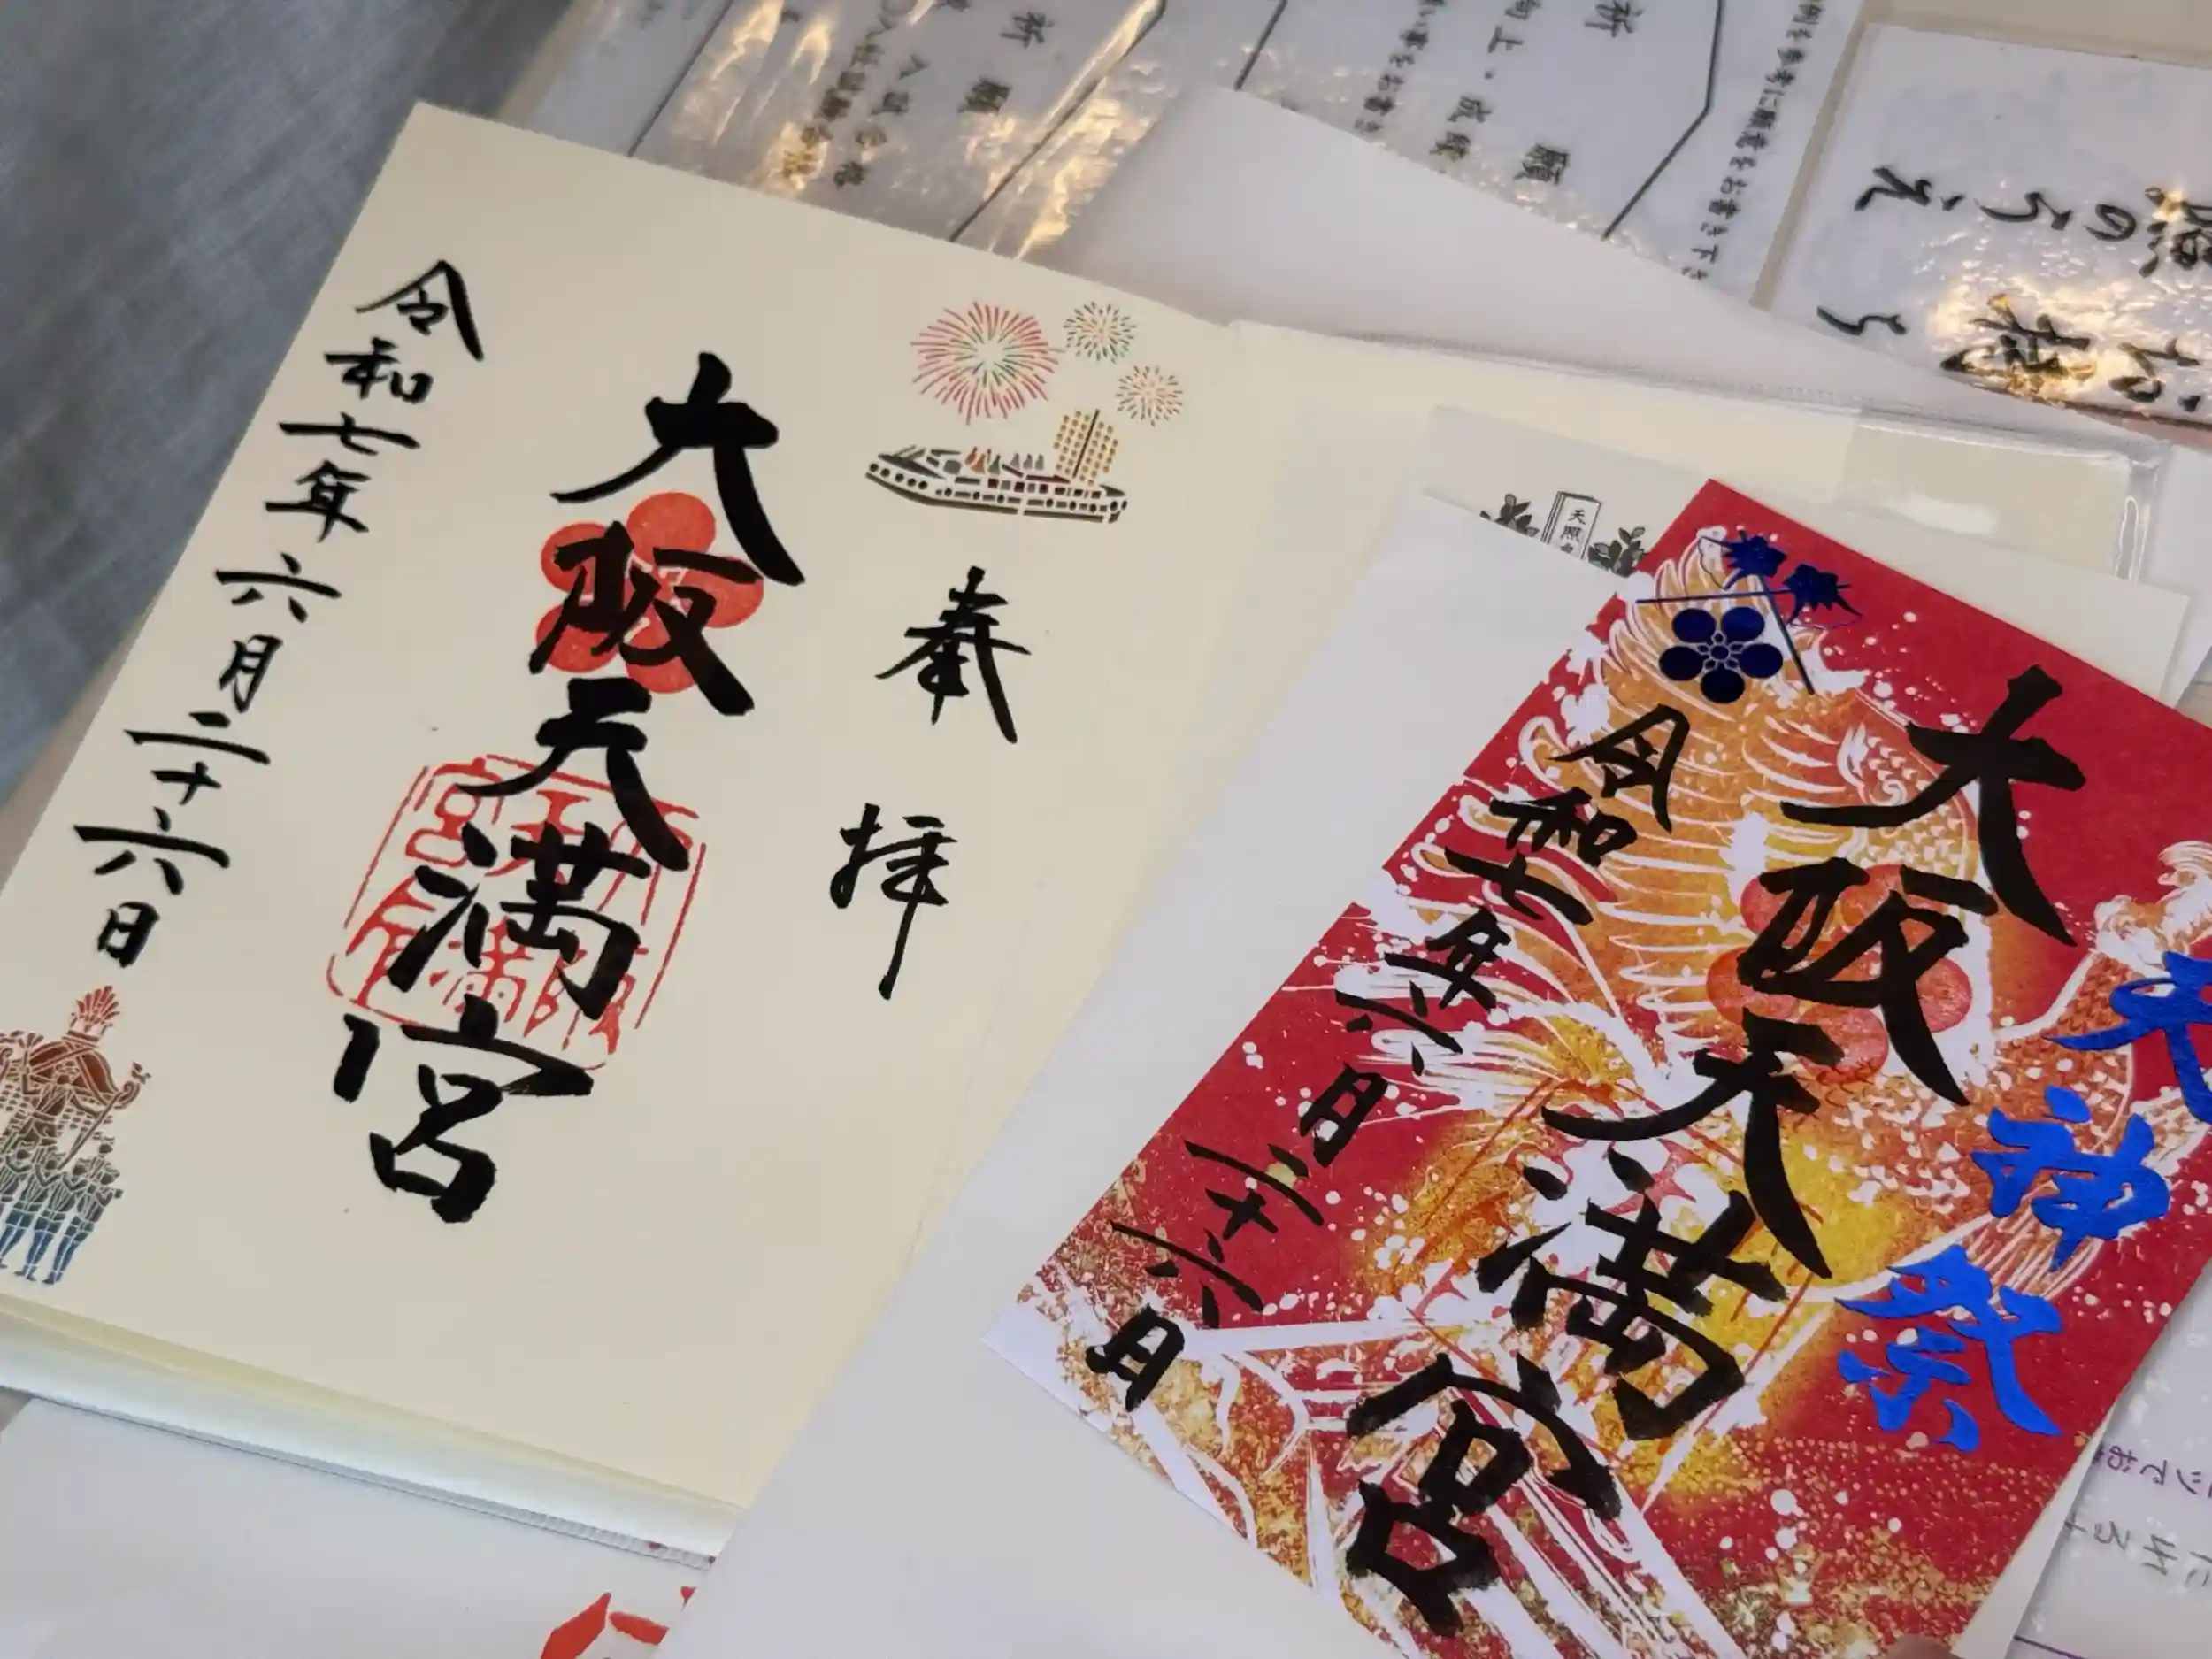 奉拝
大阪天満宮
令和七年六月二十六日
天神祭
大阪天満宮
令和七年六月二十六日
天照
祈願
入試合格
祈願
向上・成績